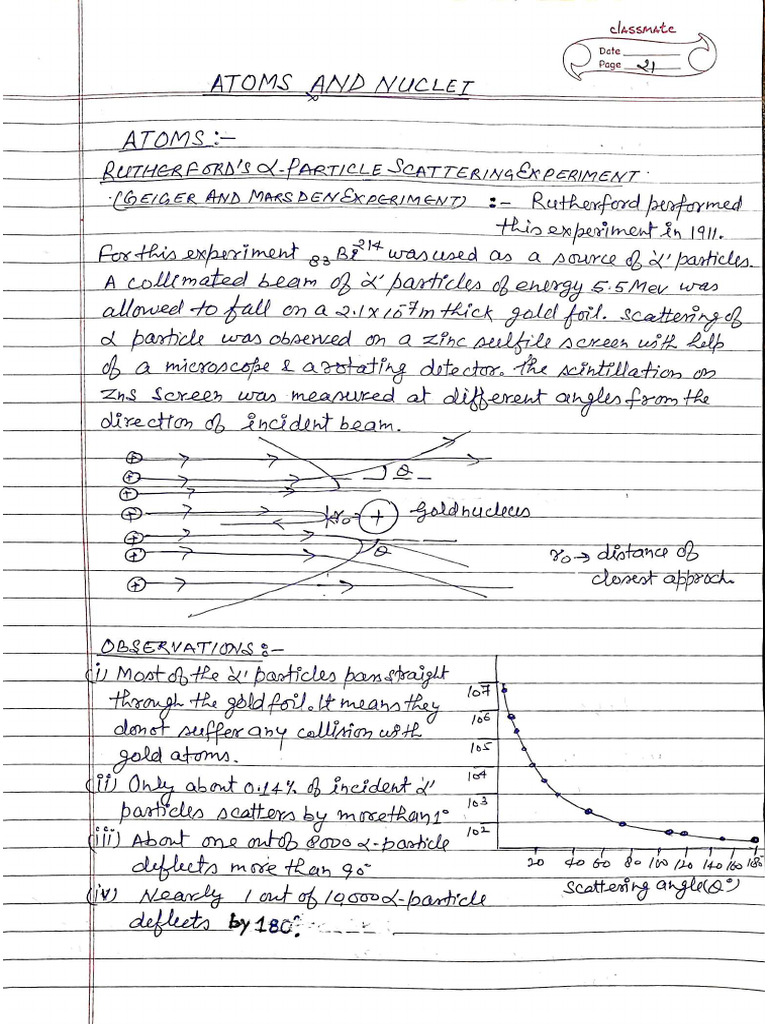 classmate
Date
Page 21
ATOMS AND NUCLEI
ATOMS :-
RUTHERFORD'S α-PARTICLE SCATTERING EXPERIMENT.
(GEIGER AND MARSDEN EXPERIMENT) :- Rutherford performed
this experiment in 1911.
For this experiment ₈₃Bi²¹⁴ was used as a source of α' particles.
A collimated beam of α' particles of energy 5.5 Mev was
allowed to fall on a 2.1×10⁻⁷m thick gold foil. Scattering of
α particle was observed on a zinc sulfile screen with help
of a microscope & a rotating detector. The scintillation on
ZnS screen was measured at different angles from the
direction of incident beam.
θ
r₀ + Gold nucleus
θ
r₀ → distance of
closest approch.
OBSERVATIONS :-
(i) Most of the α' particles pass straight
through the gold foil. It means they
donot suffer any collision with
gold atoms.
(ii) Only about 0.14% of incident α'
particles scatters by more than 1°
(iii) About one out of 8000 α-particle
deflects more than 90°
(iv) Nearly 1 out of 10,000 α-particle
deflects by 180°.
10⁷
10⁶
10⁵
10⁴
10³
10²
20 40 60 80 100 120 140 160 180
Scattering angle (θ°)